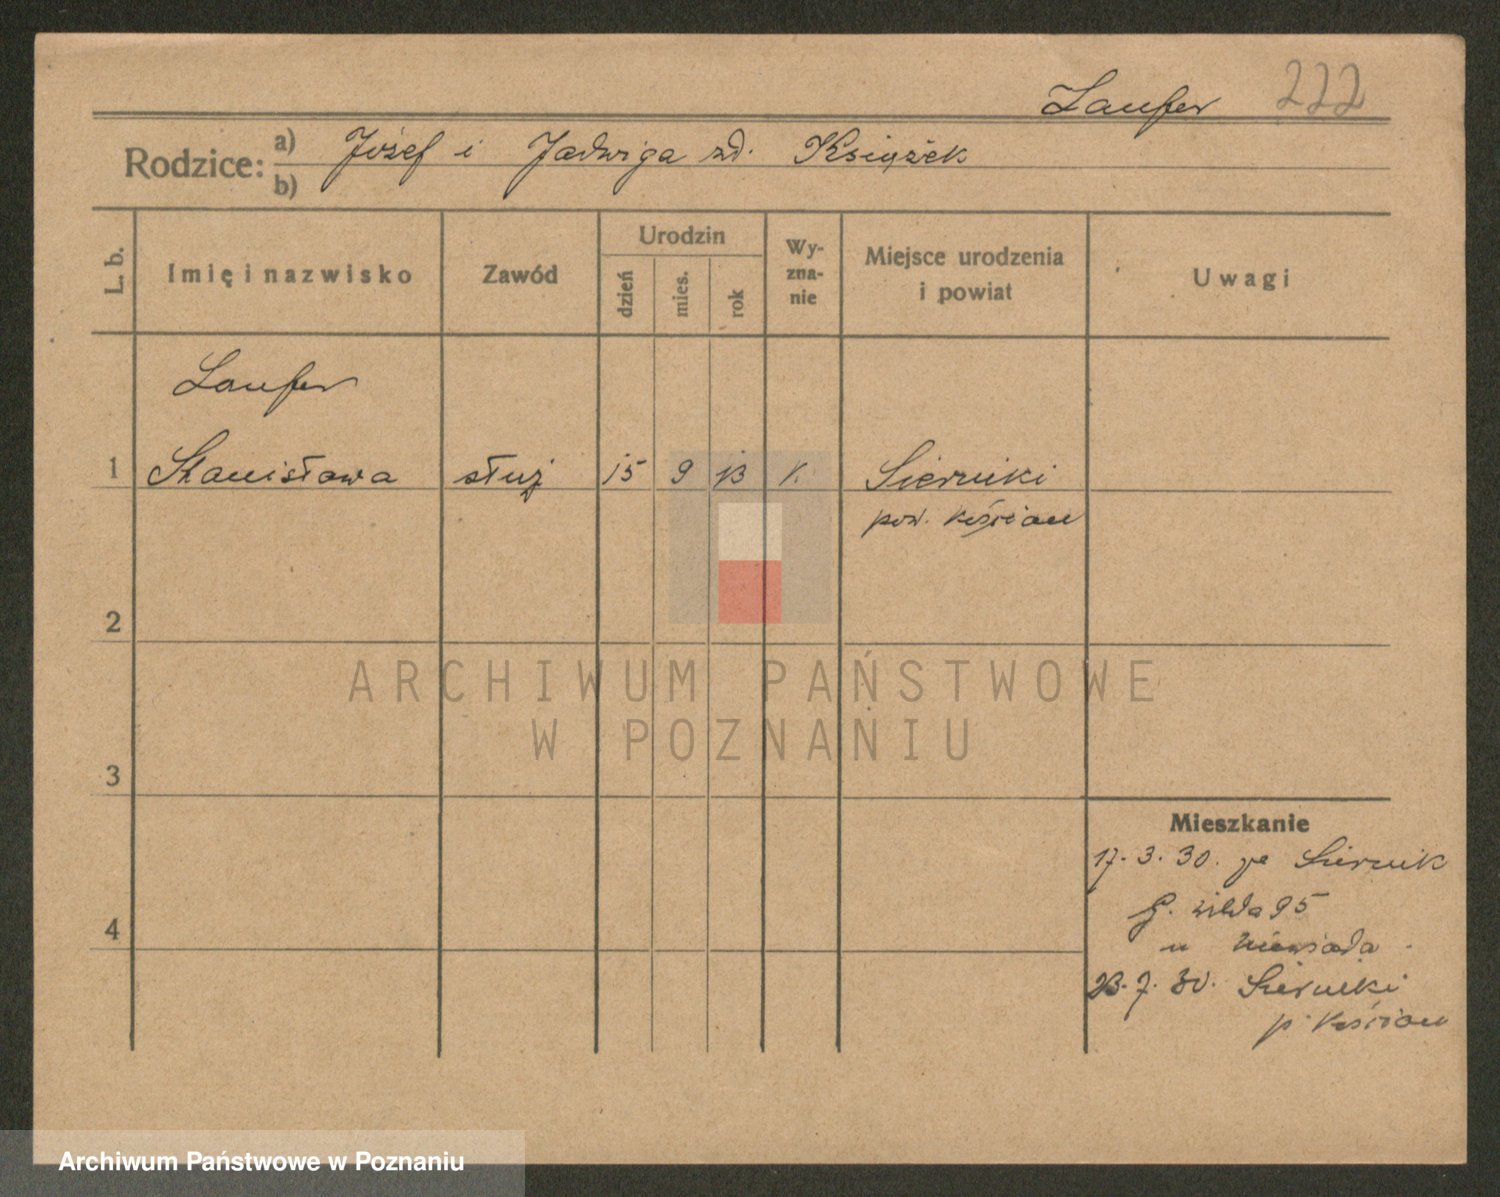 Laufer 222
Rodzice: a) Józef i Jadwiga zd. Książek
b)
L. b. Imię i nazwisko Zawód Urodzin dzień mies. rok Wy-zna-nie Miejsce urodzenia i powiat Uwagi
Laufer
1 Stanisława służ 15 9 13 k. Sierniki
pow. Kościan
2
ARCHIWUM PAŃSTWOWE
W POZNANIU
3
Mieszkanie
17. 3. 30. ze Siernik
G. Wilda 95
4
u Niewiada
23. 7. 30. Sierniki
p. Kościan
Archiwum Państwowe w Poznaniu